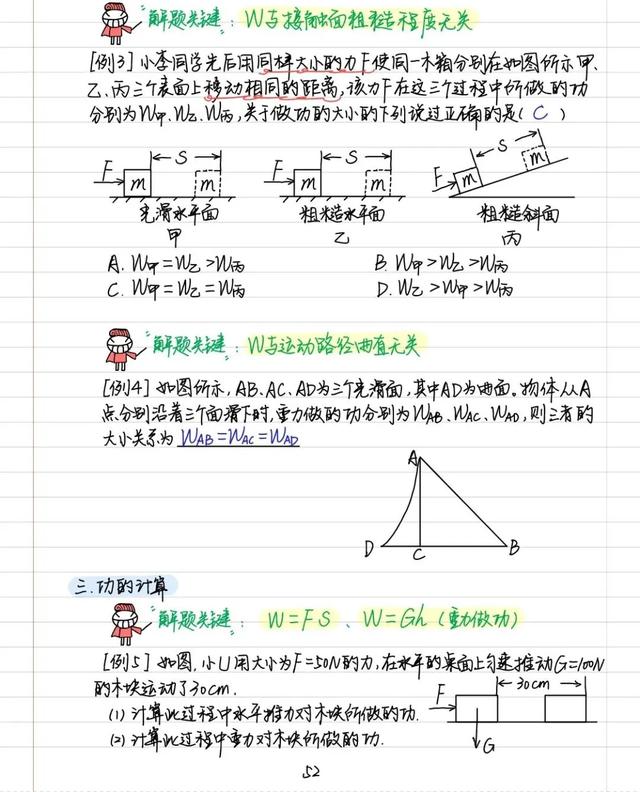 解题关键：W与接触面粗糙程度无关
[例3] 小李同学先后用同样大小的力F使同一木箱分别在如图所示甲、
乙、丙三个表面上移动相同的距离，该力F在这三个过程中所做的功
分别为W甲、W乙、W丙，关于做功的大小的下列说过正确的是( C )
F m S m
F m S m
F m S m
光滑水平面
粗糙水平面
粗糙斜面
甲
乙
丙
A. W甲=W乙>W丙
B. W甲>W乙>W丙
C. W甲=W乙=W丙
D. W乙>W甲>W丙
解题关键：W与运动路径曲直无关
[例4] 如图所示，AB、AC、AD为三个光滑面，其中AD为曲面。物体从A
点分别沿着三个面滑下时，重力做的功分别为WAB、WAC、WAD，则三者的
大小关系为 WAB=WAC=WAD
A
D
C
B
三.功的计算
解题关键： W=FS 、 W=Gh (重力做功)
[例5] 如图，小U用大小为F=50N的力，在水平的桌面上匀速推动G=100N
的木块运动了30cm.
F
30cm
G
(1) 计算此过程中水平推力对木块所做的功.
(2) 计算此过程中重力对木块所做的功.
52